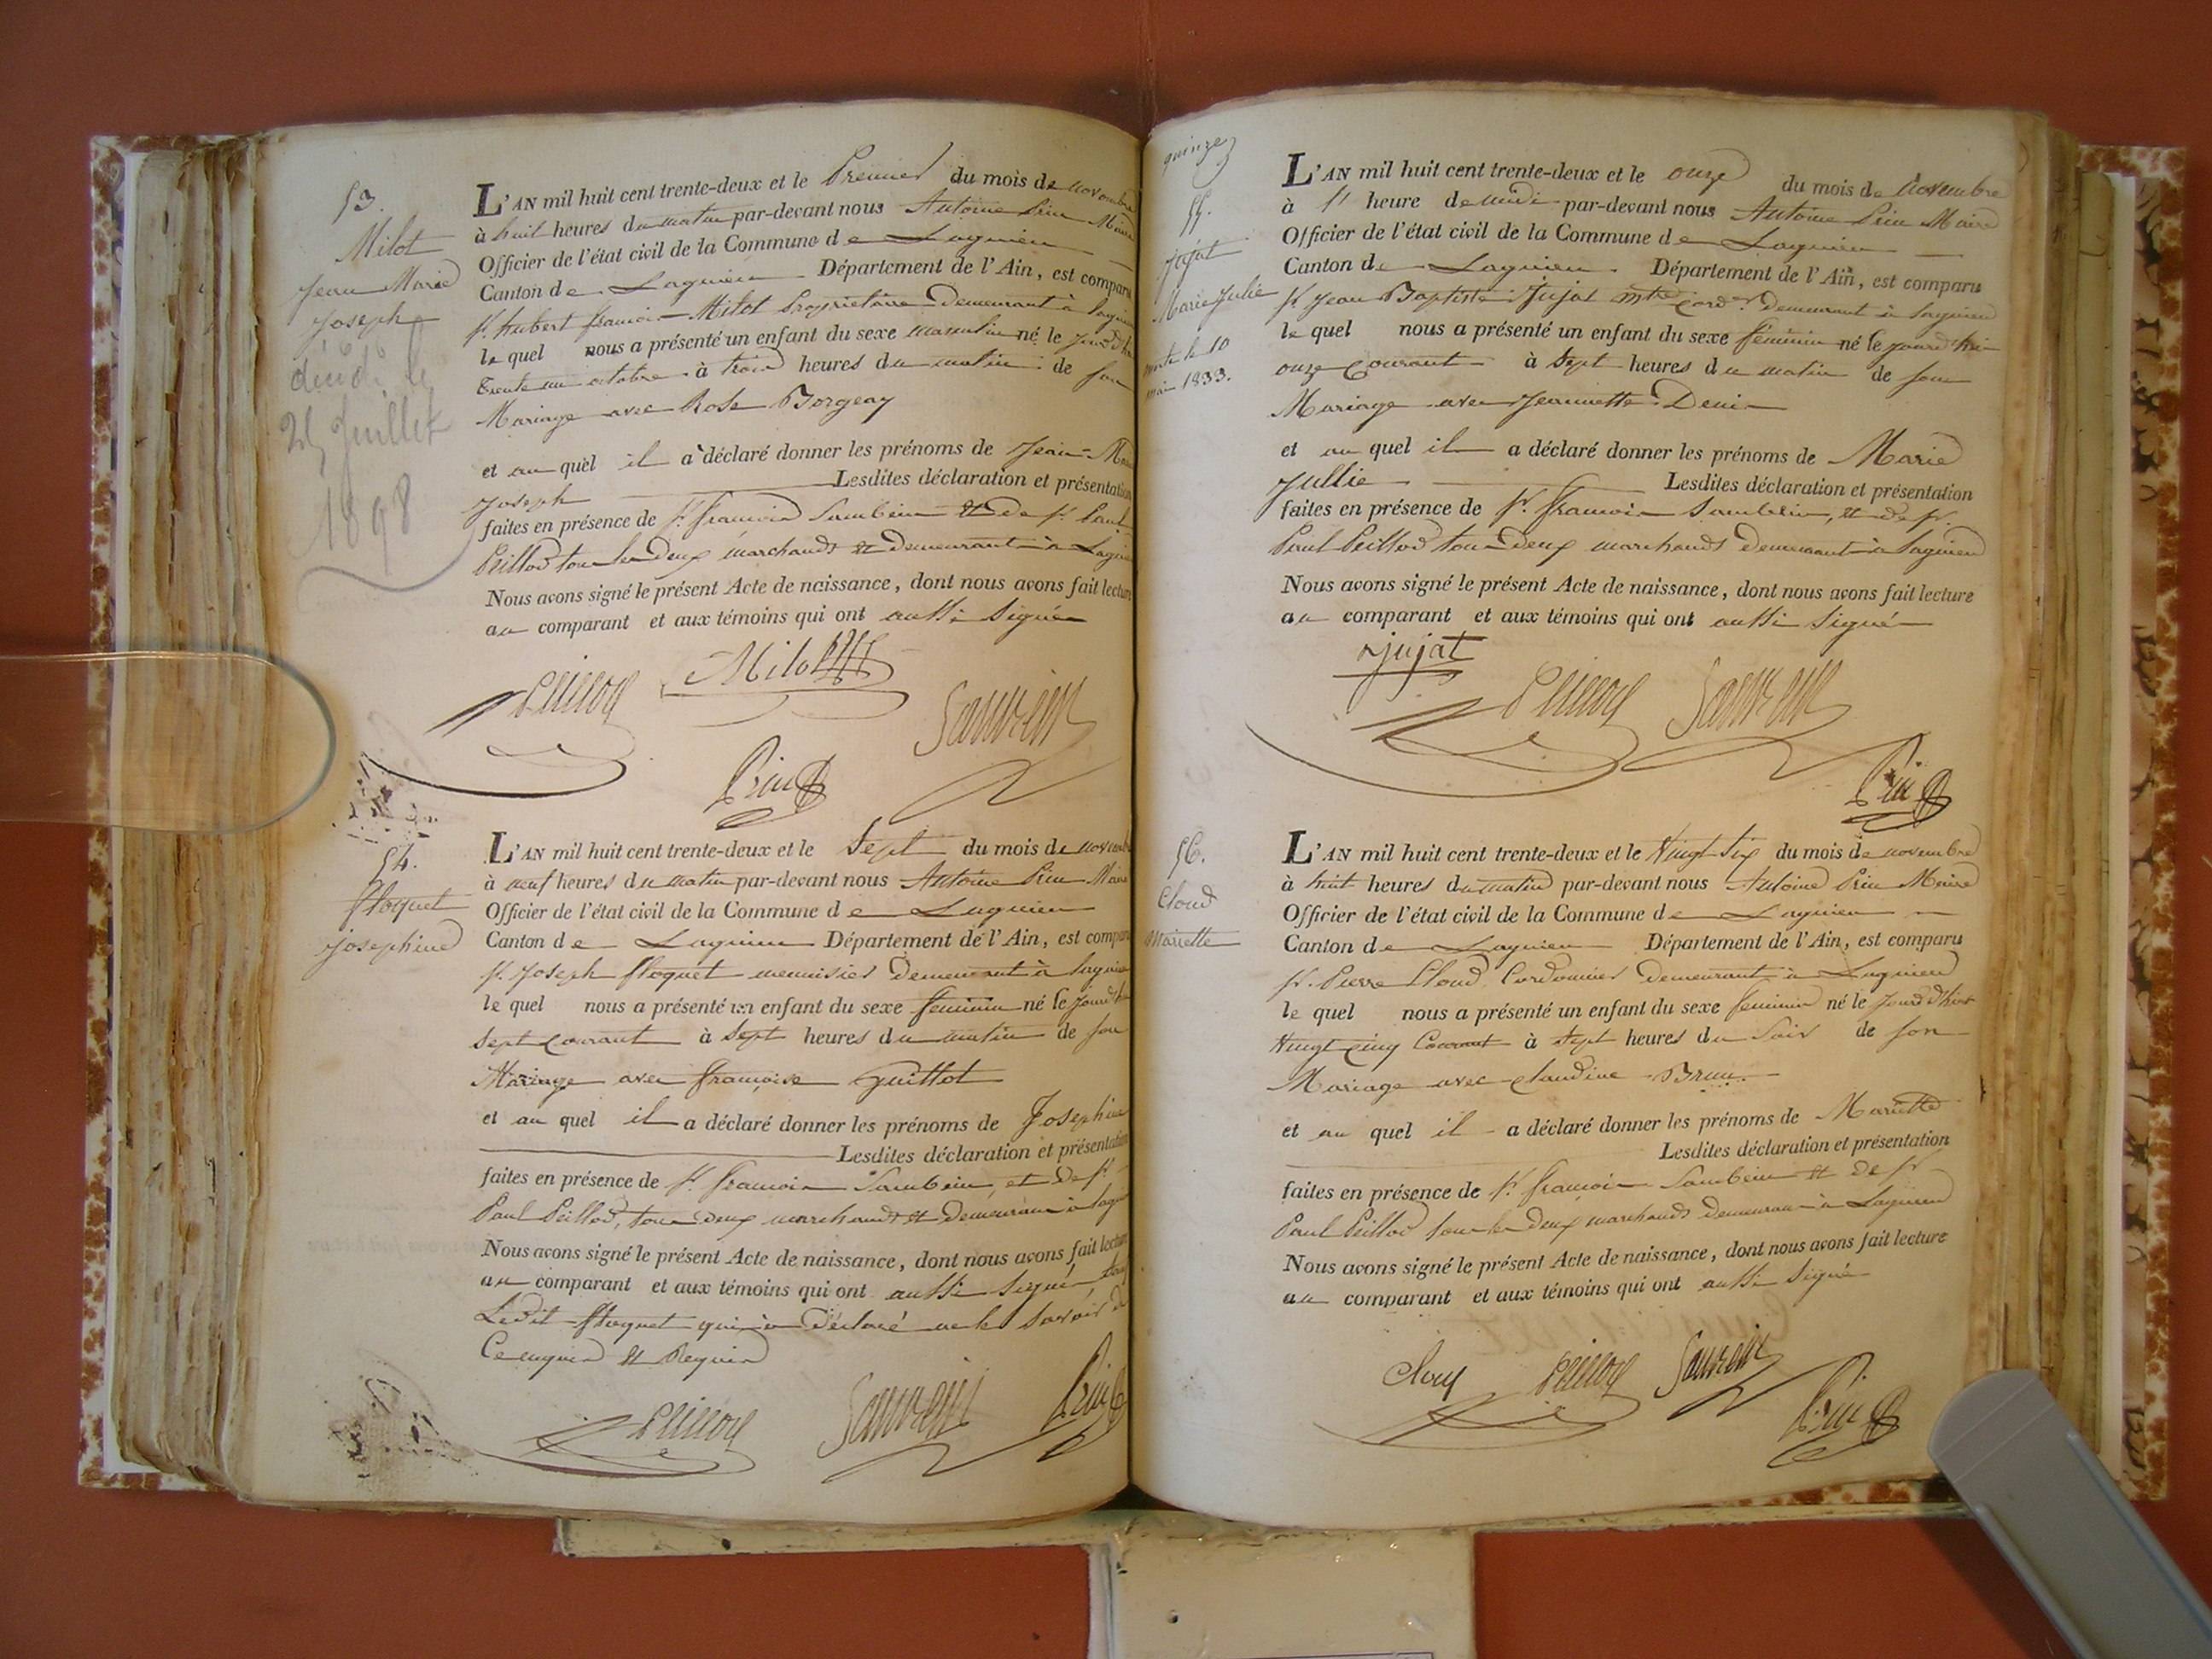 53.
Milot
Jean Marie
Joseph
25 Juillet
1898
L'AN mil huit cent trente-deux et le Premier du mois de novembre
à huit heures du matin par-devant nous Antoine Prin Maire
Officier de l'état civil de la Commune de Lagnieu
Canton de Lagnieu Département de l'Ain, est comparu
Sr. hubert françois Milot Propriétaire Demeurant à Lagnieu
lequel nous a présenté un enfant du sexe masculin né le jourd'hui
trente un octobre à trois heures du matin de son
Mariage avec Rose Borgeay
et au quel il a déclaré donner les prénoms de Jean-Marie
Joseph Lesdites déclaration et présentation
faites en présence de Sr. françois Sambein et de Sr. Paul
Peillod tous les Deux marchands et demeurant à Lagnieu
Nous avons signé le présent Acte de naissance, dont nous avons fait lecture
au comparant et aux témoins qui ont aussi signés
Peillod Milot
Sauvein
Prin
54.
floquet
josephine
L'AN mil huit cent trente-deux et le Sept du mois de novembre
à neuf heures du matin par-devant nous Antoine Prin Maire
Officier de l'état civil de la Commune de Lagnieu
Canton de Lagnieu Département de l'Ain, est comparu
Sr. Joseph floquet menuisier Demeurant à Lagnieu
le quel nous a présenté un enfant du sexe feminin né le jourd'hui
sept courant à sept heures du matin de son
Mariage avec françoise Guillot
et au quel il a déclaré donner les prénoms de Josephine
Lesdites déclaration et présentation
faites en présence de Sr. françois Sambein, et de Sr.
Paul Peillod, tous deux marchands et demeurant à Lagnieu
Nous avons signé le présent Acte de naissance, dont nous avons fait lecture
au comparant et aux témoins qui ont aussi signé
Ledit floquet qui a Déclaré ne le savoir de
Ce enquis et Requis
Peillod Sauvein Prin
quinze
55.
jujat
Marie Julie
morte le 10
mai 1833.
L'AN mil huit cent trente-deux et le onze du mois de Novembre
à 1 heure de midi par-devant nous Antoine Prin Maire
Officier de l'état civil de la Commune de Lagnieu
Canton de Lagnieu Département de l'Ain, est comparu
Sr. Jean Baptiste Jujat mtre Cord.er Demeurant à Lagnieu
le quel nous a présenté un enfant du sexe feminin né le jourd'hui
onze Courant à sept heures du matin de son
Mariage avec Jeannette Denis
et au quel il a déclaré donner les prénoms de Marie
Jullie Lesdites déclaration et présentation
faites en présence de Sr. françois Sambein, et de Sr.
Paul Peillod tous Deux marchands demeurant à Lagnieu
Nous avons signé le présent Acte de naissance, dont nous avons fait lecture
au comparant et aux témoins qui ont aussi signé
jujat
Peillod Sauvein
Prin
56.
Cloud
Mariette
L'AN mil huit cent trente-deux et le Vingt Six du mois de novembre
à huit heures du matin par-devant nous Antoine Prin Maire
Officier de l'état civil de la Commune de Lagnieu
Canton de Lagnieu Département de l'Ain, est comparu
Sr. Pierre Cloud Cordonnier Demeurant à Lagnieu
le quel nous a présenté un enfant du sexe feminin né le Jourd'hier
Vingt cinq Courant à sept heures du Soir de son
Mariage avec Claudine Brun
et au quel il a déclaré donner les prénoms de Mariette
Lesdites déclaration et présentation
faites en présence de Sr. françois Sambein et de Sr.
Paul Peillod tous les Deux marchands demeurant à Lagnieu
Nous avons signé le présent Acte de naissance, dont nous avons fait lecture
au comparant et aux témoins qui ont aussi signé
Peillod Sauvein
Prin